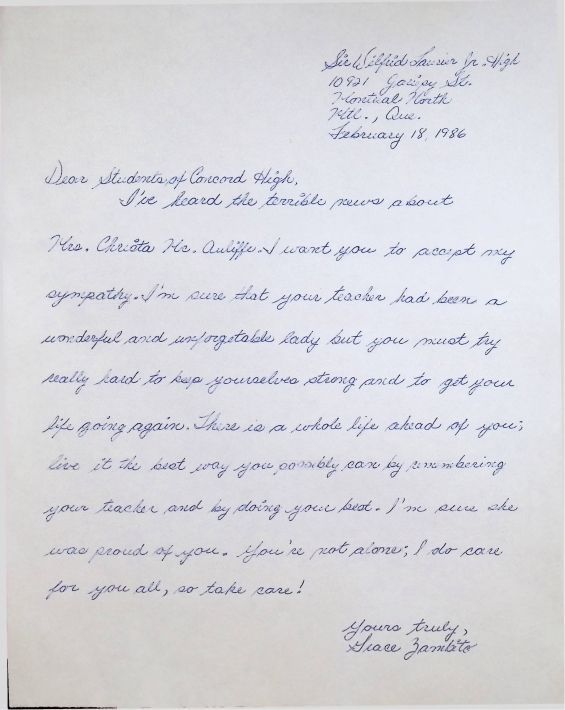 Sir Wilfrid Laurier Jr. High
10921 St.
Montreal North
Mtl., Que.
February 18, 1986
Dear Students of Concord High,
I've heard the terrible news about
Mrs. Christa Mc. Auliffe. I want you to accept my
sympathy. I'm sure that your teacher had been a
wonderful and unforgetable lady but you must try
really hard to keep yourselves strong and to get your
life going again. There is a whole life ahead of you;
live it the best way you possibly can by remembering
your teacher and by doing your best. I'm sure she
was proud of you. You're not alone; I do care
for you all, so take care!
Yours truly,
Grace Zambito